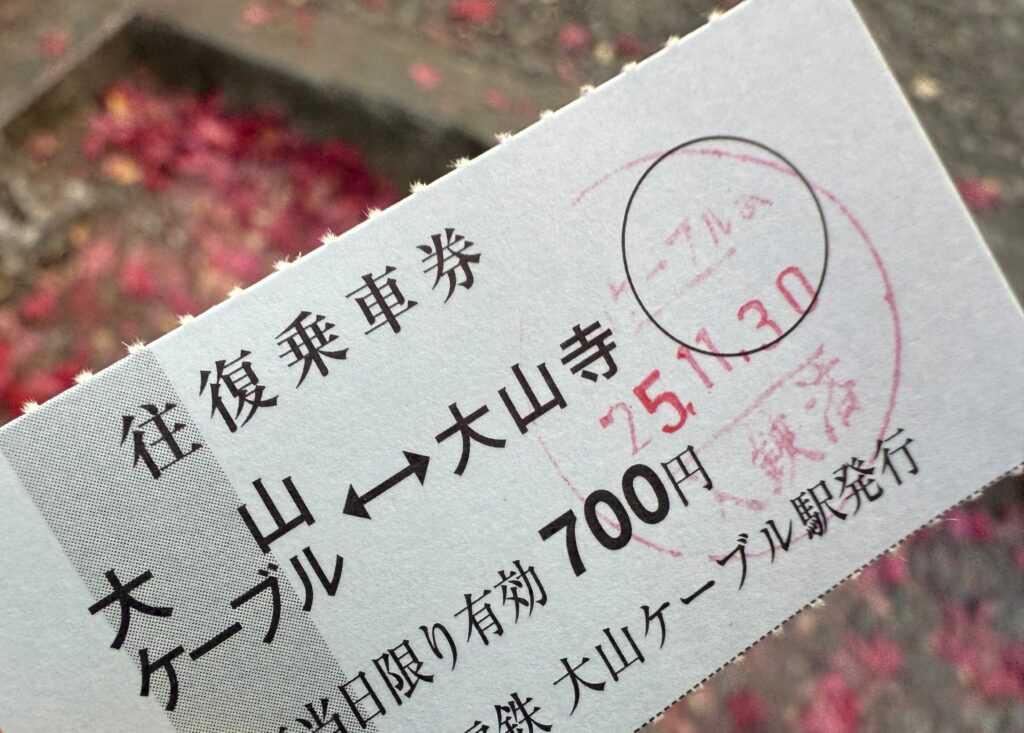 往復乗車券
大山ケーブル ↔ 大山寺
当日限り有効 700円
鉄 大山ケーブル駅発行
ーブル
25.11.30